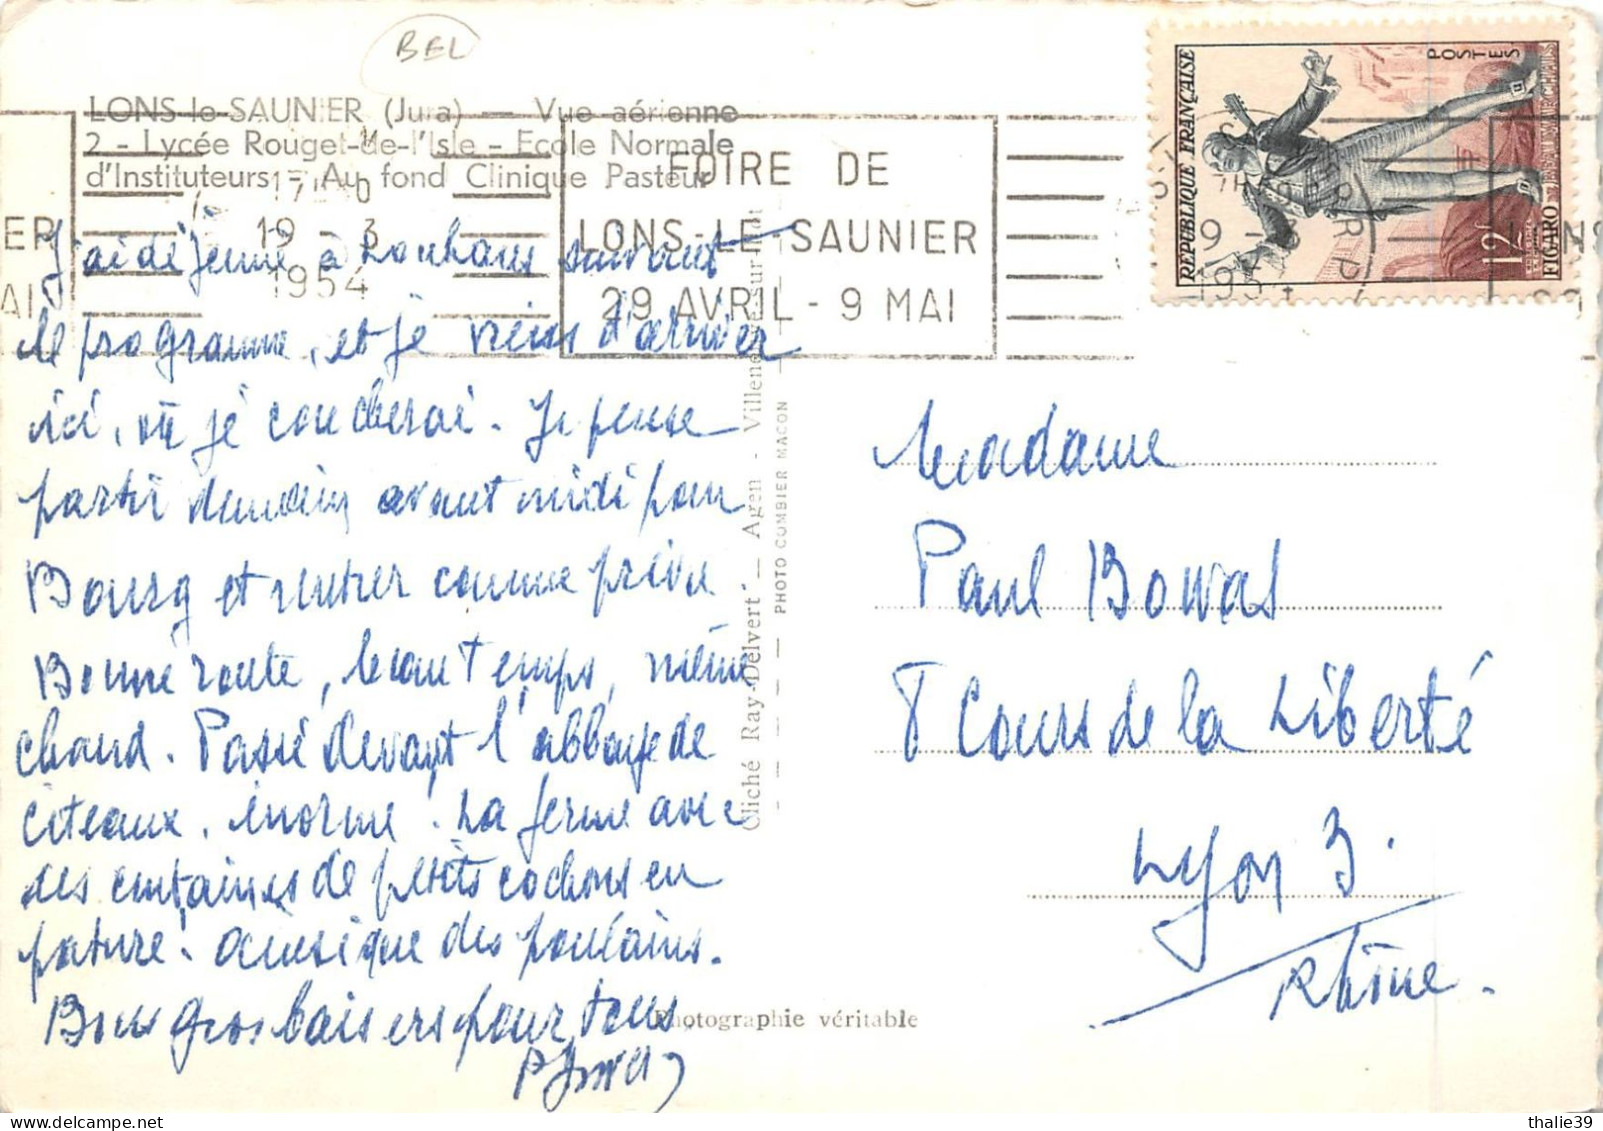 BEL
LONS-le-SAUNIER (Jura) — Vue aérienne
2 - Lycée Rouget-de-l'Isle - Ecole Normale
d'Instituteurs - Au fond Clinique Pasteur
19 - 3
1954
FOIRE DE
LONS-LE-SAUNIER
29 AVRIL - 9 MAI
ER
AI
RÉPUBLIQUE FRANÇAISE
POSTES
12F
FIGARO
BEAUMARCHAIS
9 - 3
1954
J'ai déjeuné à Louhans suivant
le programme, et je viens d'arriver
ici, où je coucherai. Je pense
partir demain avant midi pour
Bourg et rentrer comme prévu
Bonne route, beau temps, même
chaud. Passé devant l'abbaye de
Citeaux, énorme. La ferme avec
des centaines de petits cochons en
pature! ainsi que des poulains.
Bons gros baisers pour tous
Cliché Ray-Delvert — Agen - Villeneuve-sur-Lot
PHOTO COMBIER MACON
Photographie véritable
Madame
Paul Bowas
8 Cours de la Liberté
Lyon 3.
Rhône.
thalie39